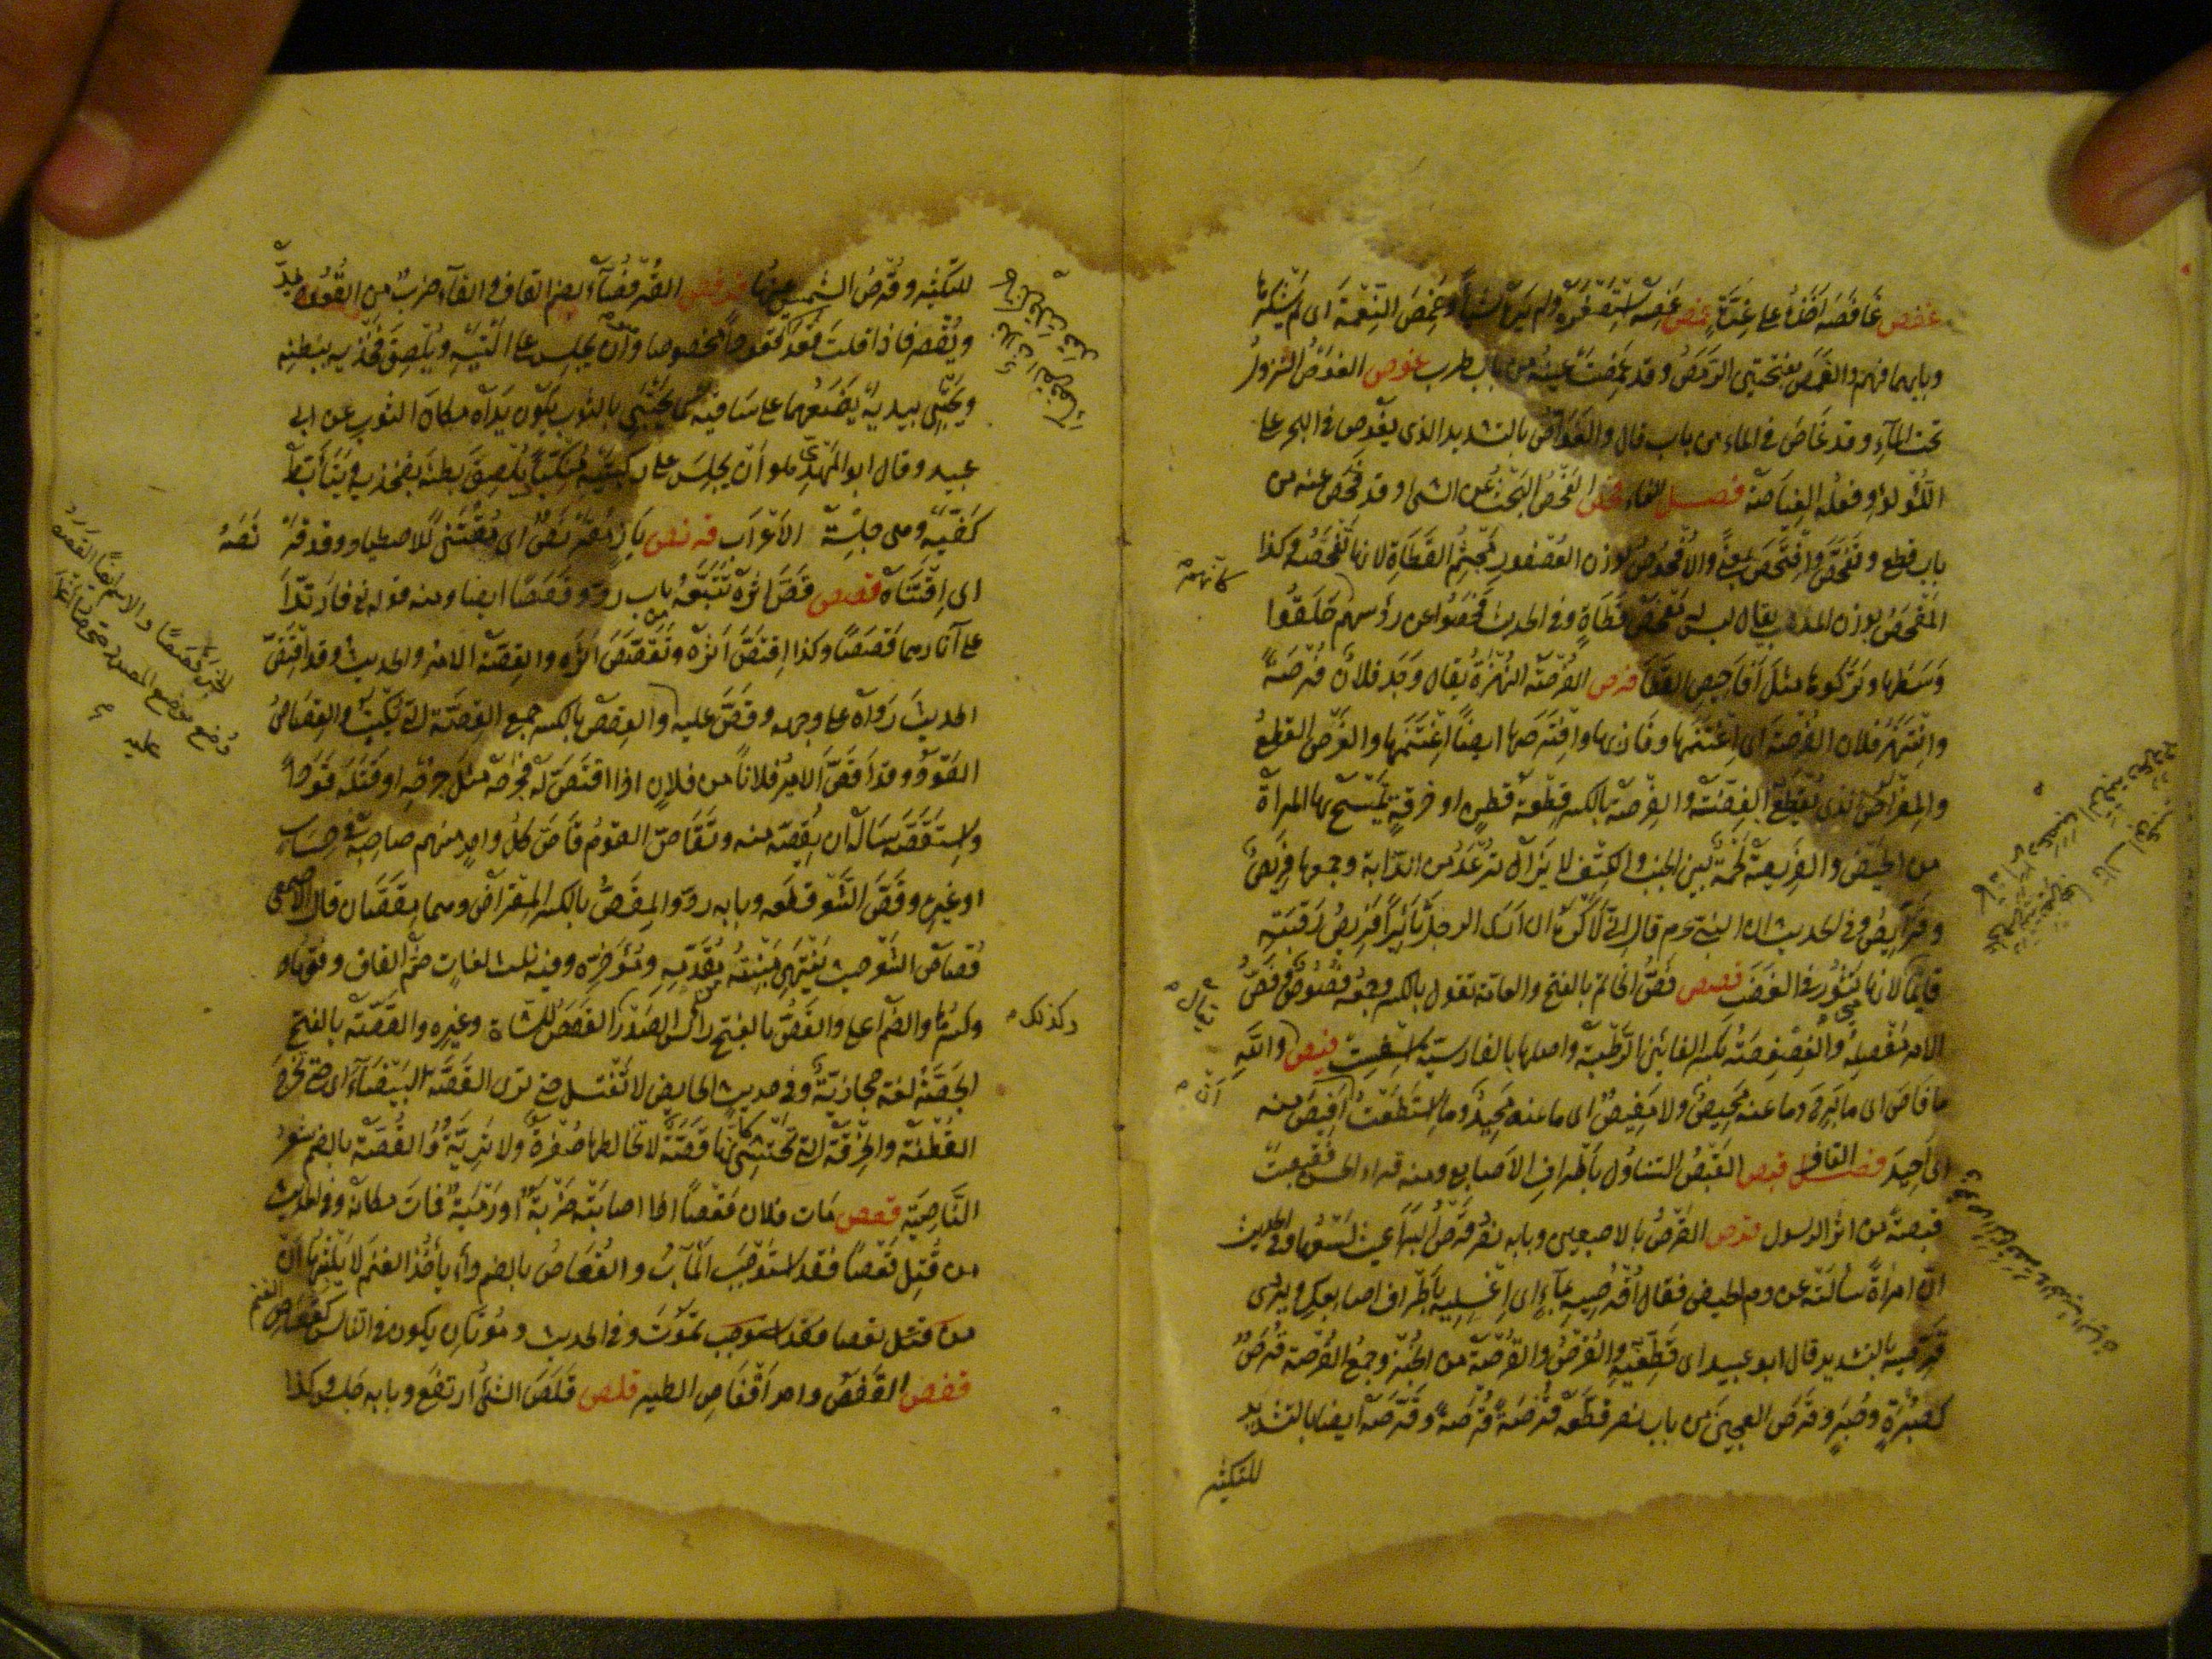 غفص غَافَصَه اَخَذَهُ على غِرَّةٍ غمص غَمِصَه اِسْتَصْغَرَه ولم يَرَه شيئاً وغَمِصَ النِّعْمَةَ اى لم يَشْكُرها
وبابهما فهم والغَمَصُ بفتحتين الرَّمَصُ وقد غَمِصَتْ عينُه من باب طرب غوص الغَوْصُ النزولُ
تحت المآءِ وقد غَاصَ فى الماء من باب قال والغَوَّاصُ بالتشديد الذى يغُوص فى البحر على
اللُّؤلؤِ وفعلُه الغِيَاصَة فصــل الفاء فحص الفَحْصُ البَحْثُ عن الشئ وقد فَحَصَ عنه من
باب قطع وتَفَحَّصَ وافْتَحَصَ بمعنًى والاُفْحُوصُ بوزن العُصْفُورِ مَجْثِمُ القَطَاةِ لانها تَفْحَصُه وكذا
المَفْحَصُ بوزن المذهب يقال ليس له مَفْحَصُ قَطَاةٍ وفى الحديث فَحَصُوا عن رؤسهم حَلَقُوا
وَسَطَها وتَرَكُوها مثلَ اَفَاحِيصِ القَطَا فرص الفُرْصَة النُّهْزَةُ يُقال وَجَد فلانٌ فُرْصَةً
وانْتَهَزَ فلان الفُرْصَةَ اى اِغْتَنَمَها وفَازَ بها وافْتَرَصَها ايضاً اِغْتَنَمَها والفَرْصُ القطعُ
والمِفْرَاصُ الذى يُقْطَعُ به الفِضَّة والفِرْصَة بالكسر قِطْعَة قُطْنٍ او خرقةٍ تَتَمَسَّح بها المرأة
من الحَيْضِ والفَرِيصَةُ لَحْمَةٌ بين الجنب والكتِف لا يَزَال تُرْعَدُ من الدّابة وجمعها فَرِيصٌ
وفَرَآيِصُ وفى الحديث ان النبىّ عم قال اِنّى لَاَكْرَهُ ان اَرَى الرجلَ ثَائِراً فَرِيصُ رَقَبَتِه
قايماً لانها تَثُورُ فى الغَضَبِ فصص فَصُّ الخاتم بالفتح والعامة تقول بالكسر وجمعه فُصُوصٌ وفَصُّ
الامر مَفْصِلُه والفِصْفِصَةُ بكسر الفائين الرَّطْبة واصلها بالفارسيّة اِسْفِسْت فيص واللّهِ
ما فَاصَ اى ما بَرِحَ وما عنه مَحِيصٌ ولا مَفِيصٌ اى ما عنه مَحِيدٌ وما اسْتَطَعْتُ اَفِيصَ منه
اى اَحِيدَ فصــل القاف قبص القَبْصُ التناوُلُ بِاَطْرافِ الاَصابع ومنه قراءة الحسن فقَبَصْتُ
قبصةً من اثر الرسول قرص القَرْصُ بالاصبعين وبابه نصر وقَرْصُ البَرَاغِيث لَسْعُها وفى الحديث
انّ امراةً سألَتْه عن دم الحيض فقال اُقْرُصِيهِ بمآءٍ اى اِغْسِلِيه بِاَطْراف اصابعِكِ ويُروى
قَرِّصِيه بالتشديد قال ابو عبيد اى قَطِّعِيه والقُرْصُ والقُرْصَة من الخُبْز وجمع القُرْصَة قُرَصٌ
كصُبْرَةٍ وصُبَرٍ وقَرَصَ العجينَ من باب نصر قطّعه قُرْصَةً قُرْصَةً وقَرَّصَه ايضا بالتشديد
للتكثير
للتكثير وقُرْصُ الشمسِ عينُها قرفص القُرْفُصَآءُ بضم القاف والفآء ضربٌ من القُعُود يُمَدُّ
ويُقْصَر فاذا قلتَ قَعَدَ قُعُوداً مخصوصا وهو اَنْ يجلِس على اَلْيَتَيْه ويُلْصِقَ فَخِذَيه ببَطنه
ويَحْتَبِى بيديه يَضَعُهما على سَاقَيه كما يَحْتَبِى بالثوب يكون يَدَاه مكانَ الثوب عن ابى
عبيد وقال ابو المَهْدِىّ هو اَنْ يجلِسَ على ركبتيه مُنْكَبّاً ويُلْصِقَ بطنَه بفخذيه ويَتَاَبَّطَ
كَفَّيه وهى جِلْسَة الاَعْرَاب قرنص بَازٍ مُقَرْنَصٌ اى مُقْتَنًى للاصطياد وقد قَرْنَصَهُ
اى اِقْتَنَاه قصص قَصَّ اثره تَتَبَّعه من باب ردّ وقَصَصاً ايضا ومنه قوله تع فارتَدَّا
على آثارهما قَصَصاً وكذا اقْتَصَّ اثره وتَقَصَّصَ اثره والقِصَّة الامر والحديث وقد اقْتَصَّ
الحديثَ رَوَاه على وجهه وقصَّ عليه والقِصَص بالكسر جمع القِصَّة التى تُكْتَبُ والقِصَاصُ
القَوَدُ وقد اَقَصَّ الاميرُ فلاناً من فلانٍ اذا اقتَصَّ له فجَرَحَه مثلَ جَرْحِه او قَتَلَه قَوَداً
واستَقَصَّه سَاَلَه ان يُقِصّه منه وتَقَاصَّ القومُ قَاصَّ كلُّ واحدٍ منهم صاحبَه فى حِسَابٍ
اوغيرِه وقَصَّ الشَّعْرَ قَطَعه وبابه ردّ والمِقَصُّ بالكسر المِقْرَاضُ وهما مِقَصَّان قال الاصمعى
قُصَاصُ الشَّعْر حيث يَنْتَهِى نَبْتُه من مُقَدَّمِه ومُؤَخَّرِه وفيه ثلث لغاتٍ ضمّ القاف وفتحها و
وكسرُها والضمّ اعلى والقَصُّ بالفتح رأس الصَدْر وكذلك القَصَصُ للشاة وغيره والقَصَّة بالفتح
الجَصَّة لغة حجازيّة وفى حديث الحايض لا تَغْتَسِل حتى ترى القَصَّة البَيْضَآءَ اى حتى تَخْرُجَ
القُطْنَة والخِرْقَة التى تَحْتَشِى كَاَنَّها قَصَّةٌ لا تُخَالطها صُفْرَةٌ ولا تَرِيَّةٌ والقُصَّة بالضم شَعرُ
النَّاصِيَةِ قعص مَات فلان قَعْصاً اذا اصابَتْه ضَرْبَةٌ او رَمْيَةٌ فمَاتَ مكانَه وفى الحديث
من قُتِلَ قَعْصاً فقد استَوْجَبَ المآبَ والقُعَاصُ بالضم دآء يأخُذ الغنم لا يَلْبَثُها ان
تموتَ وفى الحديث ومُوتَانٍ يكون فى الناس كقُعَاصِ الغنم
قفص القَفَصُ واحد اَقْفَاصِ الطير قلص قَلَصَ الشئُ ارتفَع وبابه جلس وكذا